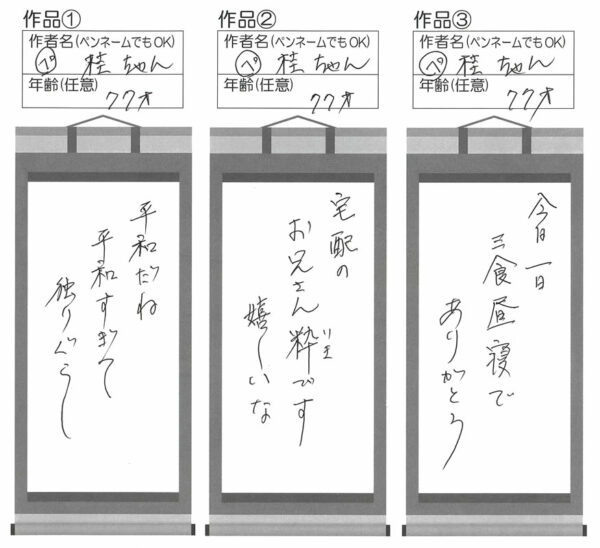 作品①
作者名(ペンネームでもOK)
ペ 桂ちゃん
年齢(任意)
77才
平和だね
平和すぎて
独りぐらし
作品②
作者名(ペンネームでもOK)
ペ 桂ちゃん
年齢(任意)
77才
宅配の
お兄さん粋です
嬉しいな
作品③
作者名(ペンネームでもOK)
ペ 桂ちゃん
年齢(任意)
77才
今日一日
三食昼寝で
ありがとう